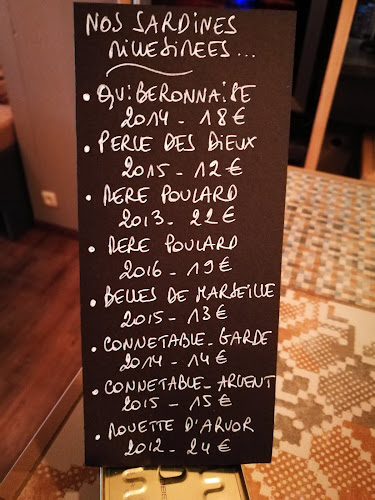 NOS SARDINES
MILLESIMEES...
• QUIBERONNAISE
2014 - 18€
• PERLE DES DIEUX
2015 - 12€
• MERE POULARD
2013 - 22€
• MERE POULARD
2016 - 19€
• BELLES DE MARSEILLE
2015 - 13€
• CONNETABLE - GARDE
2014 - 14€
• CONNETABLE - ARGENT
2015 - 15€
• MOUETTE D'ARVOR
2012 - 24€